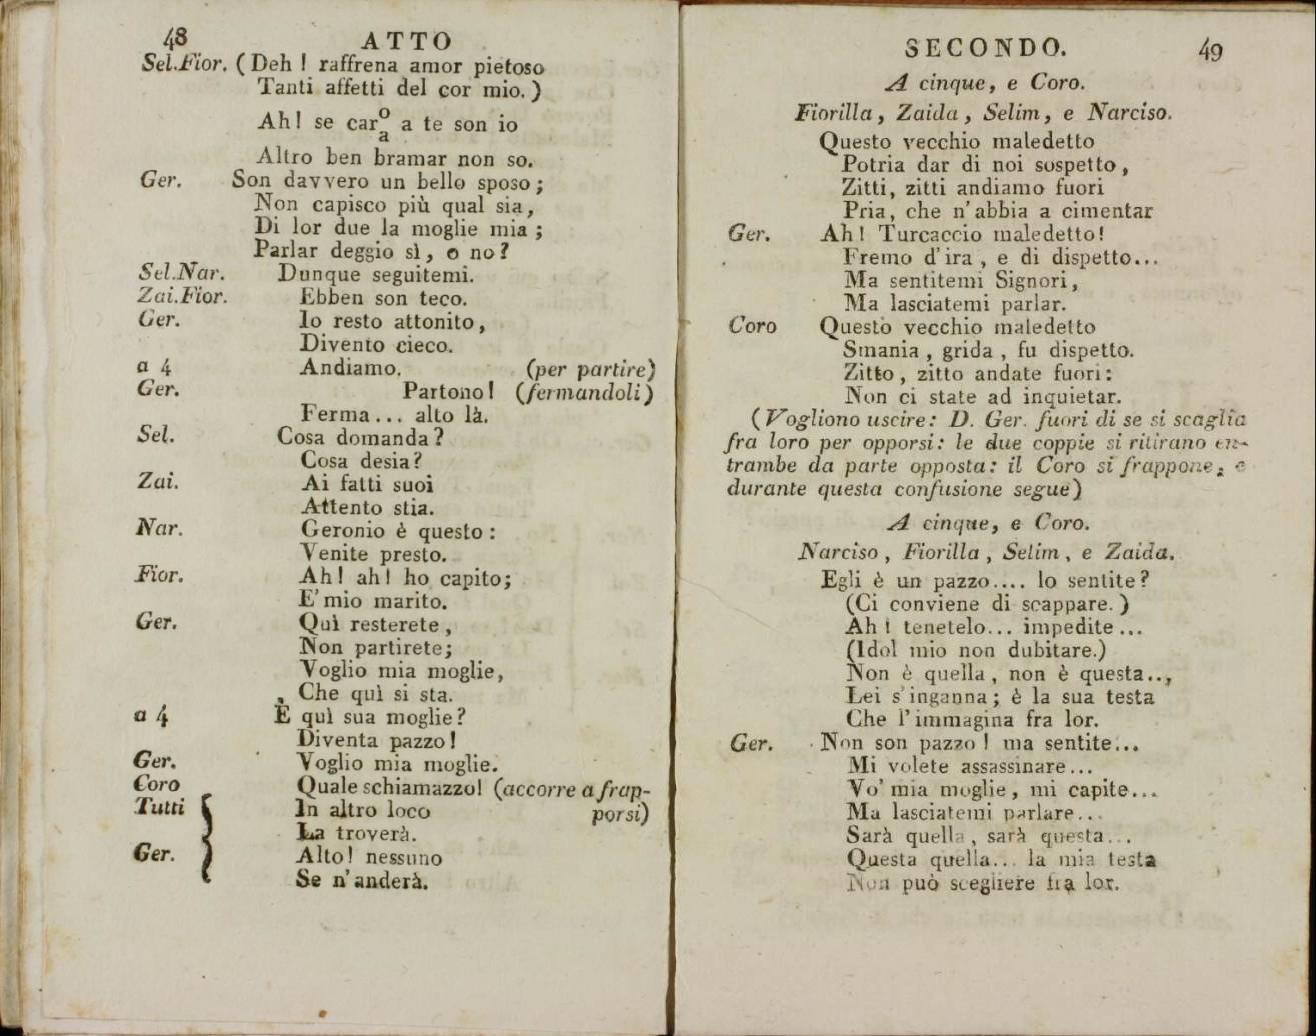 48 ATTO
Sel.Fior. (Deh ! raffrena amor pietoso
Tanti affetti del cor mio.)
Ah! se car o/a a te son io
Altro ben bramar non so.
Ger. Son davvero un bello sposo;
Non capisco più qual sia,
Di lor due la moglie mia;
Parlar deggio sì, o no?
Sel.Nar. Dunque seguitemi.
Zai.Fior. Ebben son teco.
Ger. Io resto attonito,
Divento cieco.
a 4 Andiamo. (per partire)
Ger. Partono! (fermandoli)
Ferma... alto là.
Sel. Cosa domanda?
Cosa desia?
Zai. Ai fatti suoi
Attento stia.
Nar. Geronio è questo:
Venite presto.
Fior. Ah! ah! ho capito;
E' mio marito.
Ger. Quì resterete,
Non partirete;
Voglio mia moglie,
Che quì si sta.
a 4 E quì sua moglie?
Diventa pazzo!
Ger. Voglio mia moglie.
Coro Quale schiamazzo! (accorre a frap-
Tutti In altro loco porsi)
La troverà.
Ger. Alto! nessuno
Se n'anderà.
SECONDO. 49
A cinque, e Coro.
Fiorilla, Zaida, Selim, e Narciso.
Questo vecchio maledetto
Potria dar di noi sospetto,
Zitti, zitti andiamo fuori
Pria, che n'abbia a cimentar
Ger. Ah! Turcaccio maledetto!
Fremo d'ira, e di dispetto...
Ma sentitemi Signori,
Ma lasciatemi parlar.
Coro Questo vecchio maledetto
Smania, grida, fu dispetto.
Zitto, zitto andate fuori:
Non ci state ad inquietar.
(Vogliono uscire: D. Ger. fuori di se si scaglia
fra loro per opporsi: le due coppie si ritirano en-
trambe da parte opposta: il Coro si frappone; e
durante questa confusione segue)
A cinque, e Coro.
Narciso, Fiorilla, Selim, e Zaida.
Egli è un pazzo.... lo sentite?
(Ci conviene di scappare.)
Ah! tenetelo... impedite...
(Idol mio non dubitare.)
Non è quella, non è questa..,
Lei s'inganna; è la sua testa
Che l'immagina fra lor.
Ger. Non son pazzo! ma sentite...
Mi volete assassinare...
Vo' mia moglie, mi capite...
Ma lasciatemi parlare...
Sarà quella, sarà questa...
Questa quella... la mia testa
Non può scegliere fra lor.